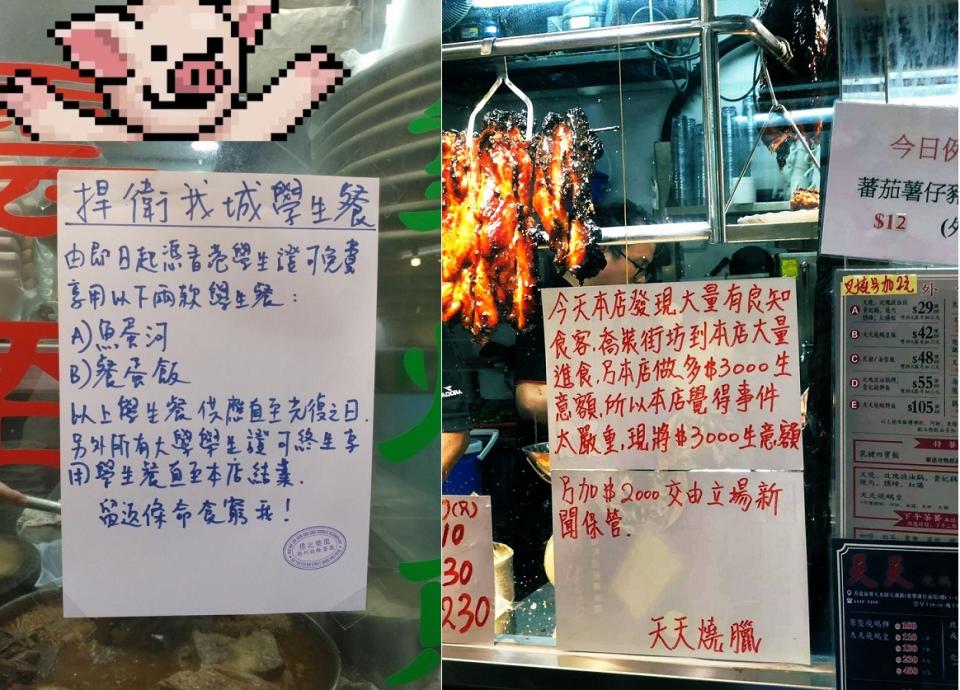 捍衛我城學生餐
由即日起憑香港學生證可免費
享用以下兩款學生餐：
A)魚蛋河
B)餐蛋飯
以上學生餐供應直至光復之日.
另外所有大學學生證可終生享
用學生餐直至本店結業.
留返條命食窮我!
今天本店發現,大量有良知
食客,喬裝街坊到本店大量
進食,乃本店做多$3000生
意額,所以本店覺得事件
太嚴重,現將$3000生意額
乃加$2000交由立場新
聞保管.
天天燒臘
10
30
230
今日例
蕃茄薯仔
$12
叉燒另加2元
外
A
$29
B
$42
C
$48
D
$55
E
$105
特餐
下午茶餐
天天
$100
$110
$130
$230
$450